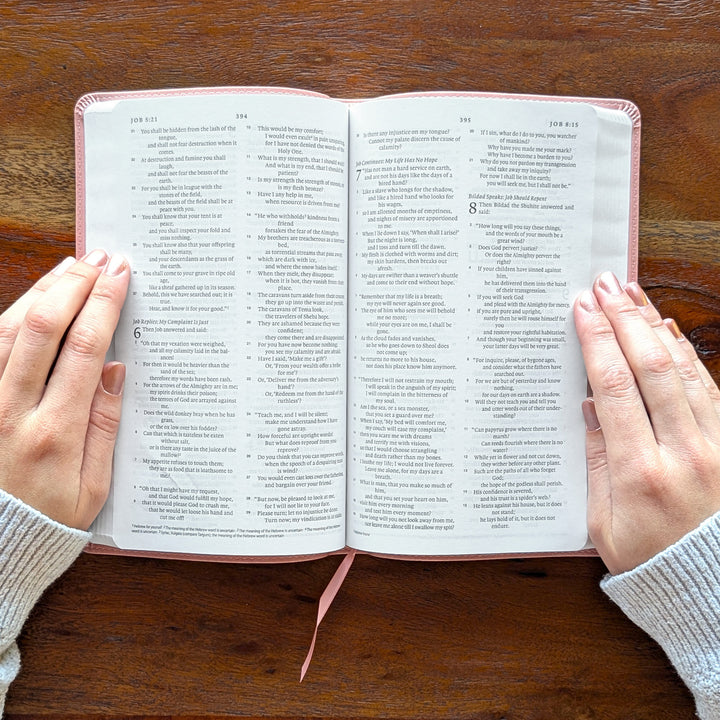 JOB 5:21
394
21 You shall be hidden from the lash of the
tongue,
and shall not fear destruction when it
comes.
22 At destruction and famine you shall
laugh,
and shall not fear the beasts of the
earth.
23 For you shall be in league with the
stones of the field,
and the beasts of the field shall be at
peace with you.
24 You shall know that your tent is at
peace,
and you shall inspect your fold and
miss nothing.
25 You shall know also that your offspring
shall be many,
and your descendants as the grass of
the earth.
26 You shall come to your grave in ripe old
age,
like a sheaf gathered up in its season.
27 Behold, this we have searched out; it is
true.
Hear, and know it for your good."
Job Replies: My Complaint Is Just
6 Then Job answered and said:
2 "Oh that my vexation were weighed,
and all my calamity laid in the bal-
ances!
3 For then it would be heavier than the
sand of the sea;
therefore my words have been rash.
4 For the arrows of the Almighty are in me;
my spirit drinks their poison;
the terrors of God are arrayed against
me.
5 Does the wild donkey bray when he has
grass,
or the ox low over his fodder?
6 Can that which is tasteless be eaten
without salt,
or is there any taste in the juice of the
mallow?
7 My appetite refuses to touch them;
they are as food that is loathsome to
me.
8 "Oh that I might have my request,
and that God would fulfill my hope,
9 that it would please God to crush me,
that he would let loose his hand and
cut me off!
10 This would be my comfort;
I would even exult in pain unsparing,
for I have not denied the words of the
Holy One.
11 What is my strength, that I should wait?
And what is my end, that I should be
patient?
12 Is my strength the strength of stones, or
is my flesh bronze?
13 Have I any help in me,
when resource is driven from me?
14 "He who withholds kindness from a
friend
forsakes the fear of the Almighty.
15 My brothers are treacherous as a torrent-
bed,
as torrential streams that pass away,
16 which are dark with ice,
and where the snow hides itself.
17 When they melt, they disappear;
when it is hot, they vanish from their
place.
18 The caravans turn aside from their course;
they go up into the waste and perish.
19 The caravans of Tema look,
the travelers of Sheba hope.
20 They are ashamed because they were
confident;
they come there and are disappointed.
21 For you have now become nothing;
you see my calamity and are afraid.
22 Have I said, 'Make me a gift'?
Or, 'From your wealth offer a bribe
for me'?
23 Or, 'Deliver me from the adversary's
hand'?
Or, 'Redeem me from the hand of the
ruthless'?
24 "Teach me, and I will be silent;
make me understand how I have
gone astray.
25 How forceful are upright words!
But what does reproof from you
reprove?
26 Do you think that you can reprove words,
when the speech of a despairing man
is wind?
27 You would even cast lots over the fatherless,
and bargain over your friend.
28 "But now, be pleased to look at me,
for I will not lie to your face.
29 Please turn; let no injustice be done.
Turn now; my vindication is at stake.
395
JOB 8:15
30 Is there any injustice on my tongue?
Cannot my palate discern the cause of
calamity?
Job Continues: My Life Has No Hope
7 "Has not man a hard service on earth,
and are not his days like the days of a
hired hand?
2 Like a slave who longs for the shadow,
and like a hired hand who looks for
his wages,
3 so I am allotted months of emptiness,
and nights of misery are apportioned
to me.
4 When I lie down I say, 'When shall I arise?'
But the night is long,
and I toss and turn till the dawn.
5 My flesh is clothed with worms and dirt;
my skin hardens, then breaks out
afresh.
6 My days are swifter than a weaver's shuttle
and come to their end without hope.
7 "Remember that my life is a breath;
my eye will never again see good.
8 The eye of him who sees me will behold
me no more;
while your eyes are on me, I shall be
gone.
9 As the cloud fades and vanishes,
so he who goes down to Sheol does
not come up;
10 he returns no more to his house,
nor does his place know him anymore.
11 "Therefore I will not restrain my mouth;
I will speak in the anguish of my spirit;
I will complain in the bitterness of
my soul.
12 Am I the sea, or a sea monster,
that you set a guard over me?
13 When I say, 'My bed will comfort me,
my couch will ease my complaint,'
14 then you scare me with dreams
and terrify me with visions,
15 so that I would choose strangling
and death rather than my bones.
16 I loathe my life; I would not live forever.
Leave me alone, for my days are a
breath.
17 What is man, that you make so much of
him,
and that you set your heart on him,
18 visit him every morning
and test him every moment?
19 How long will you not look away from me,
nor leave me alone till I swallow my spit?
20 If I sin, what do I do to you, you watcher
of mankind?
Why have you made me your mark?
Why have I become a burden to you?
21 Why do you not pardon my transgression
and take away my iniquity?
For now I shall lie in the earth;
you will seek me, but I shall not be."
Bildad Speaks: Job Should Repent
8 Then Bildad the Shuhite answered and
said:
2 "How long will you say these things,
and the words of your mouth be a
great wind?
3 Does God pervert justice?
Or does the Almighty pervert the
right?
4 If your children have sinned against
him,
he has delivered them into the hand
of their transgression.
5 If you will seek God
and plead with the Almighty for mercy,
6 if you are pure and upright,
surely then he will rouse himself for
you
and restore your rightful habitation.
7 And though your beginning was small,
your latter days will be very great.
8 "For inquire, please, of bygone ages,
and consider what the fathers have
searched out.
9 For we are but of yesterday and know
nothing,
for our days on earth are a shadow.
10 Will they not teach you and tell you
and utter words out of their under-
standing?
11 "Can papyrus grow where there is no
marsh?
Can reeds flourish where there is no
water?
12 While yet in flower and not cut down,
they wither before any other plant.
13 Such are the paths of all who forget
God;
the hope of the godless shall perish.
14 His confidence is severed,
and his trust is a spider's web.
15 He leans against his house, but it does
not stand;
he lays hold of it, but it does not
endure.